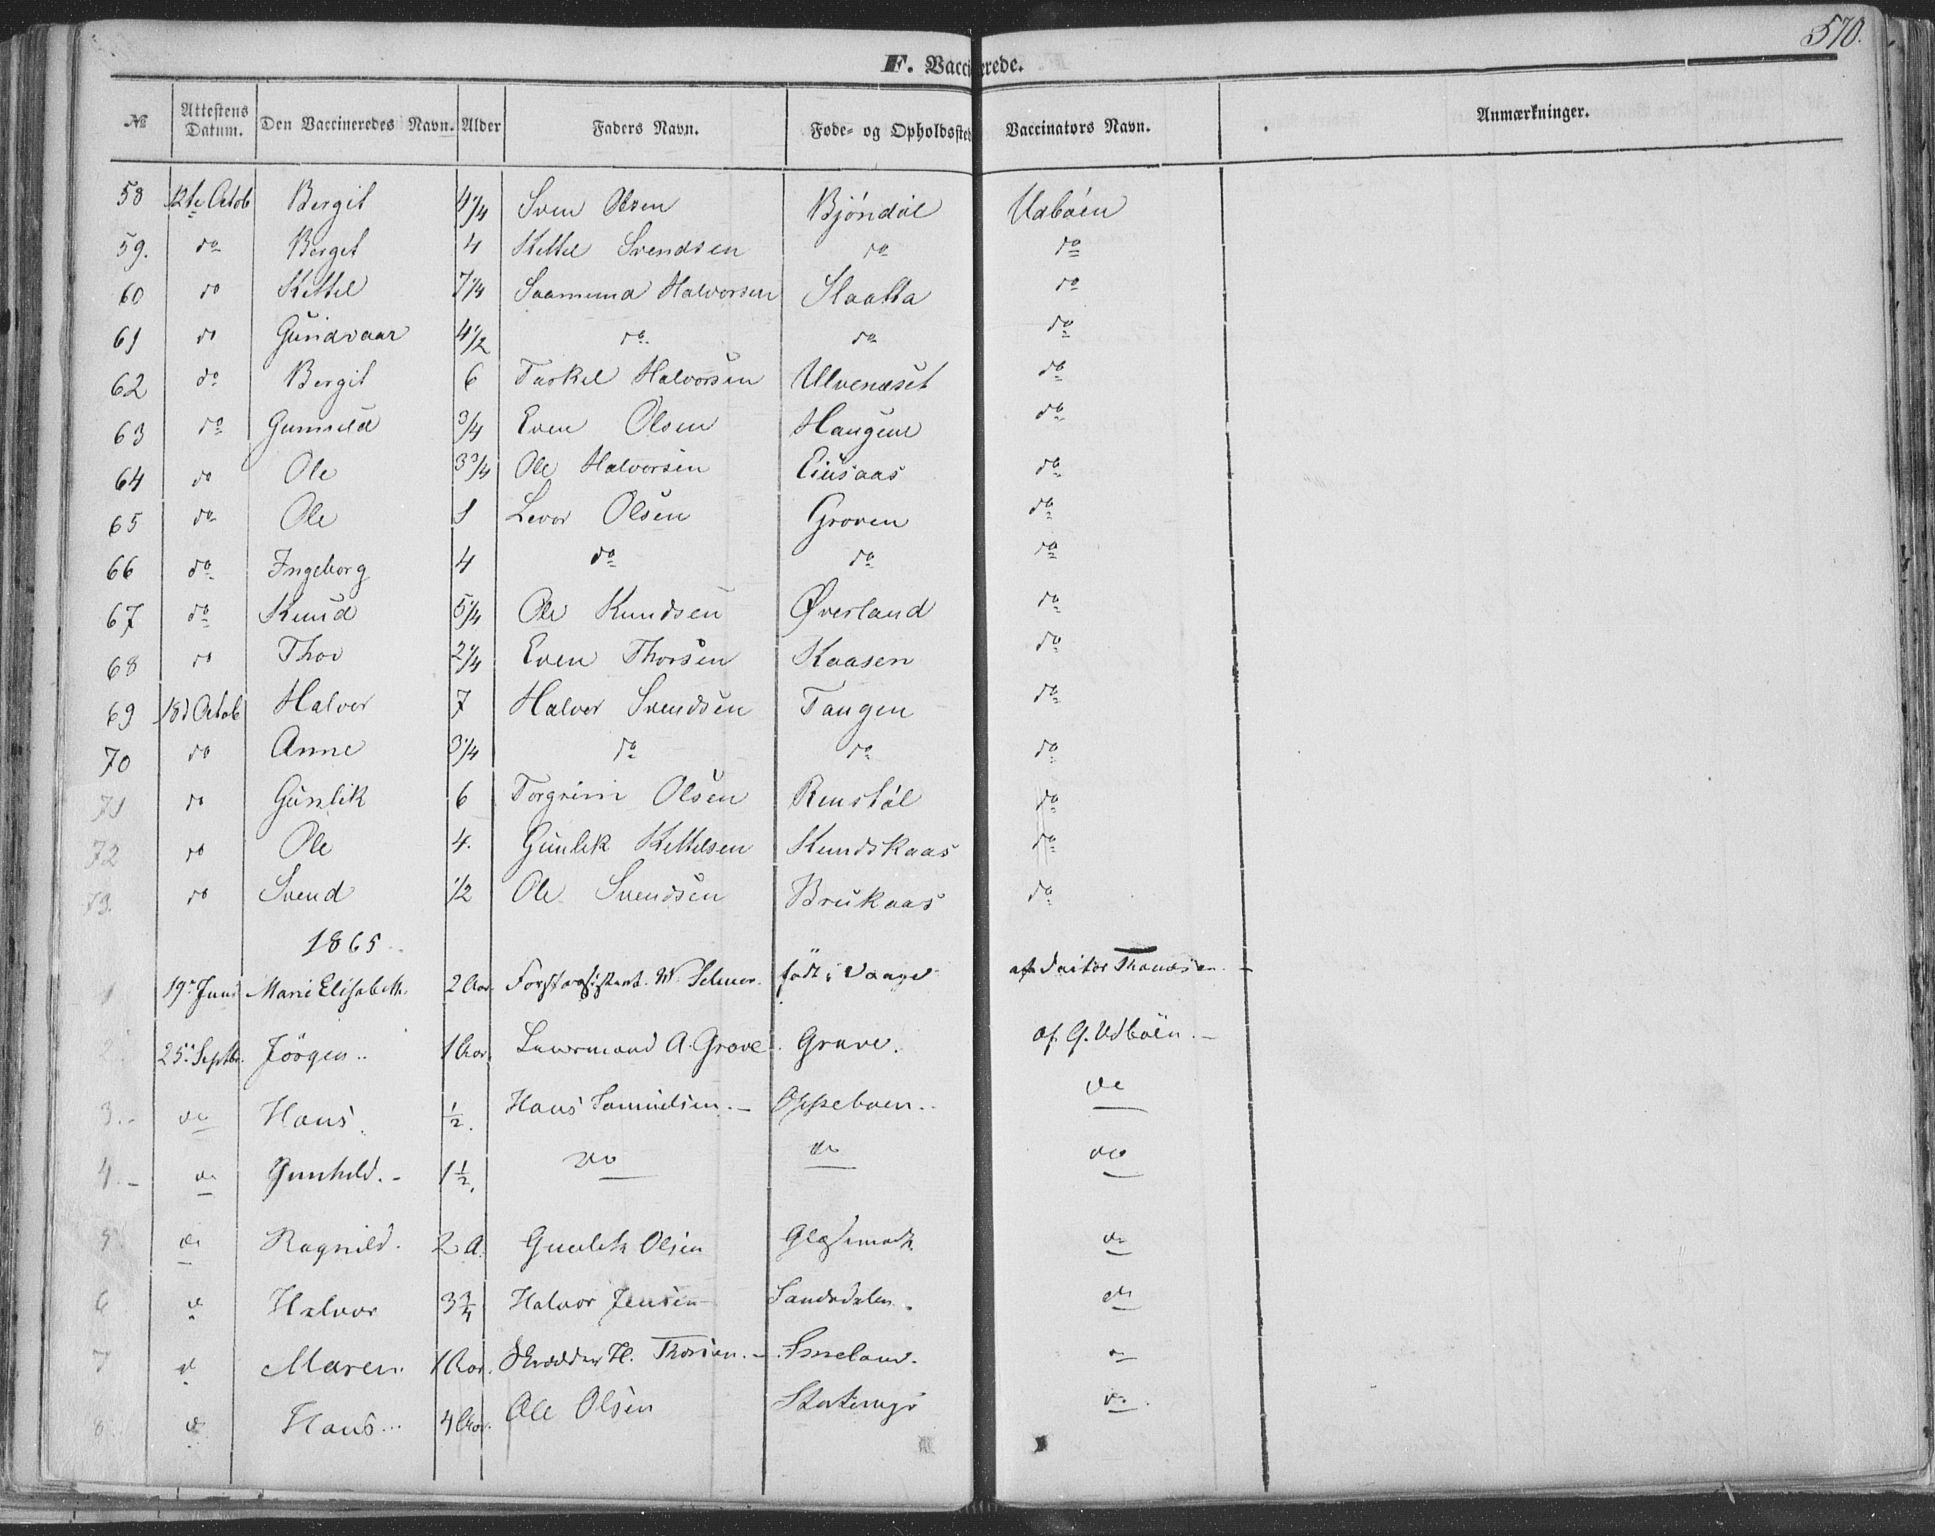 570.
F. Vaccinerede.
№ Attestens Datum. Den Vaccineredes Navn. Alder Faders Navn. Føde- og Opholdssted Vaccinators Navn. Anmærkninger.
58 12te Octob Bergit 4 1/4 Sven Olsen Bjöndal Udböen
59. do Berget 4 Kittel Svendsen do do
60 do Kittel 7 1/4 Saamund Halvorsen Slaatta do
61 do Gundvaar 4 1/2 do do do
62 do Bergit 6 Tarkel Halvorsen Ulvenæset do
63 do Gunnild 3/4 Even Olsen Haugene do
64 do Ole 3 3/4 Ole Halvorsen do
65 do Ole 1 Levor Olsen Groven do
66 do Ingeborg 4 do do do
67 do Knud 5 1/4 Ole Knudsen Øverland do
68 do Thov 2 1/4 Even Thorsen Kaasen do
69 18d Octob Halvor 7 Halvor Svendsen Tangen do
70 do Anne 3 1/4 do do do
71 do Gunlik 6 Torgrim Olsen Renstöl do
72 do Ole 4. Gunlek Kittelsen Knudskaas do
73. do Svend 1/2 Ole Svendsen Brukaas do
1865.
1 19de Juni Marie Elisabeth. 2 Aar. Forstassistent. W. Selmer. født i Vaage af Doctor Thomesen. –
2 25. Septbr. Jörgen .. 1 Aar. A. Grave. Grave. af G. Udböen. –
3. – do Hans. 1/2. Hans Samuelsen. – Oppeboen.. do
4. – do Gunhild. – 1 1/2. do do do
5 do Ragnild. 2 A. Gunlek Olsen do
6 do Halvor 3 3/4 Halvor Jensen Sandsdalen. do
7 d Maren. 1 Aar. Skrædder H. Thorsen. – Smeland. do
8 do Hans... 4 Aar. Ole Olsen do.